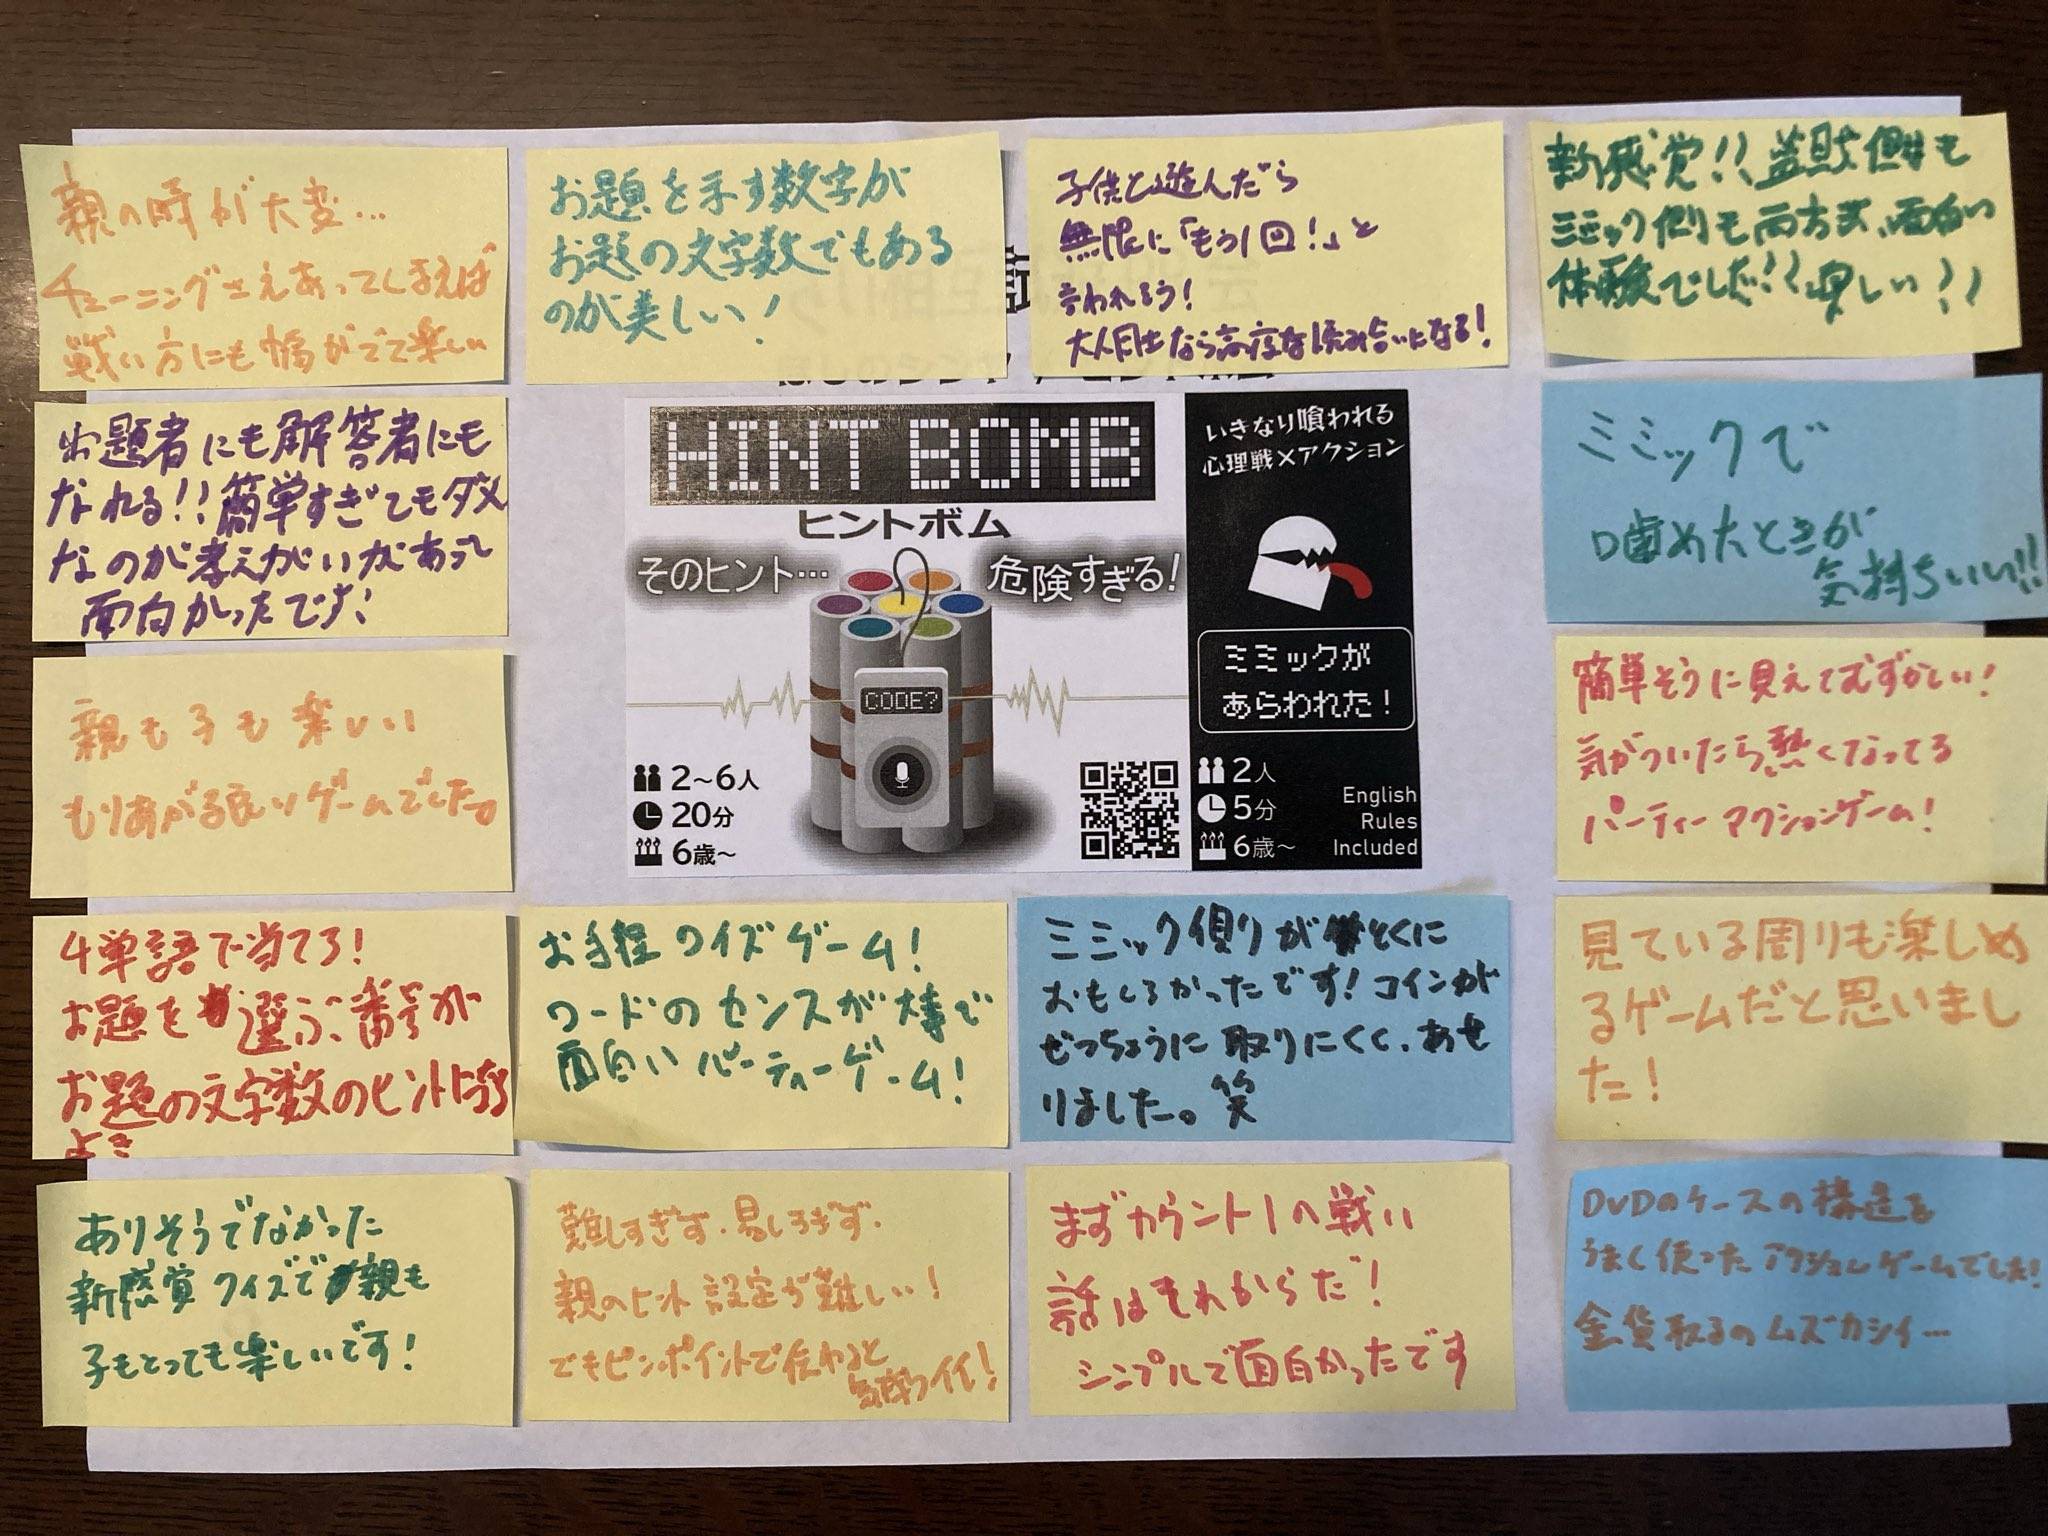 親の時が大変…
チューニングさえあってしまえば
戦い方にも幅がでて楽しい
お題を示す数字が
お題の文字数でもある
のが美しい!
子供と遊んだら
無限に「もう1回!」と
言われそう!
大人同士なら高度な読み合いになる!
新感覚!!盗賊側も
ミミック側も両方共、面白い
体験でした!!
お題者にも解答者にも
なれる!!簡単すぎてもダメ
なのが考えがいがあって
面白かったです!
HINT BOMB
ヒントボム
そのヒント…
危険すぎる!
CODE?
2~6人
20分
6歳~
いきなり喰われる
心理戦×アクション
ミミックが
あらわれた!
2人
5分
6歳~
English
Rules
Included
ミミックで
噛めたときが
気持ちいい!!
親も子も楽しい
もりあがる良いゲームでした。
簡単そうに見えてむずかしい!
気がついたら熱くなってる
パーティーアクションゲーム!
4単語で当てろ!
お題を選ぶ番号が
お題の文字数のヒントになる
よき
お手軽クイズゲーム!
ワードのセンスが大事で
面白いパーティーゲーム!
ミミック側がとくに
おもしろかったです!コインが
ぜつみょうに取りにくく、あせ
りました。笑
見ている周りも楽しめ
るゲームだと思いまし
た!
ありそうでなかった
新感覚クイズで親も
子もとっても楽しいです!
難しすぎず、易しすぎず、
親のヒント設定が難しい!
でもピンポイントで伝わると
気持ちイイ!
まずカウント1の戦い
話はそれからだ!
シンプルで面白かったです
DVDのケースの構造を
うまく使ったアクションゲームでした!
金貨取るのムズカシイ…